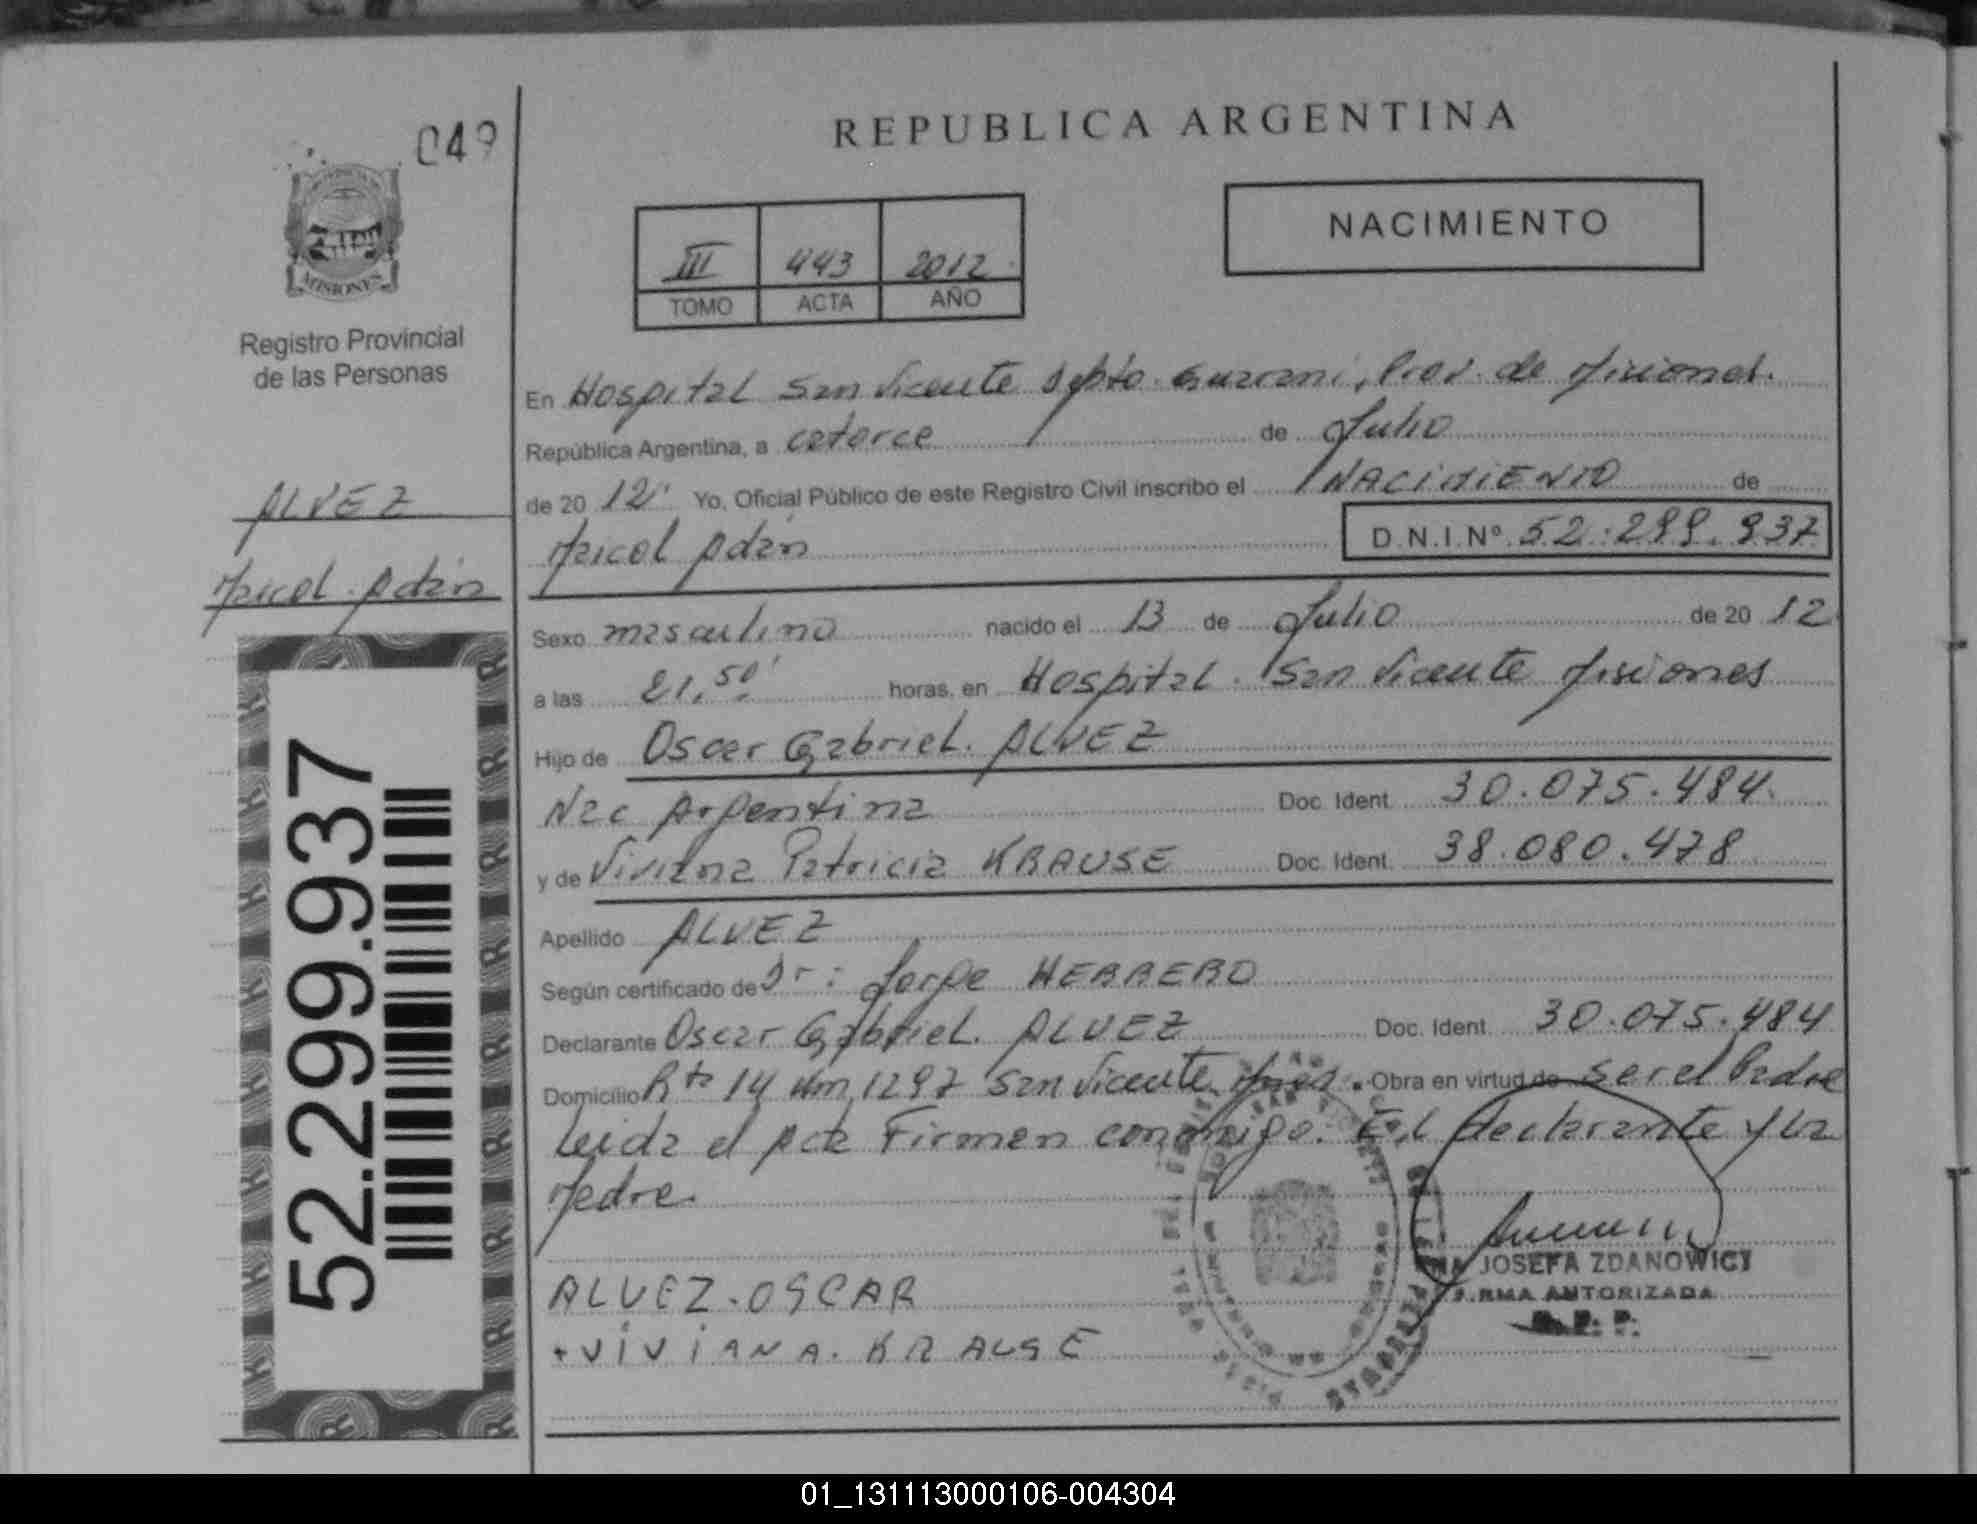 049
MISIONES
Registro Provincial
de las Personas
ALVEZ
Maicol Adán
52.299.937
REPUBLICA ARGENTINA
III 443 2012
TOMO ACTA AÑO
NACIMIENTO
En Hospital San Vicente Dpto. Guarani, Prov. de Misiones.
República Argentina, a catorce de Julio
de 20 12 Yo, Oficial Público de este Registro Civil inscribo el NACIMIENTO de
Maicol Adán D.N.I.Nº 52.299.937
Sexo masculino nacido el 13 de Julio de 20 12
a las 21,50' horas, en Hospital. San Vicente Misiones
Hijo de Oscar Gabriel. ALVEZ
Nac Argentina Doc. Ident. 30.075.484.
y de Viviana Patricia KRAUSE Doc. Ident. 38.080.478
Apellido ALVEZ
Según certificado de Dr: Jorge HERRERO
Declarante Oscar Gabriel. ALVEZ Doc. Ident. 30.075.484
Domicilio Rta 14 Km 1297 San Vicente Mnes. Obra en virtud de ser el Padre
Leida el Acta Firman conmigo. El declarante y la
Madre.
ALVEZ. OSCAR
VIVIANA. KRAUSE
JOSEFA ZDANOWICZ
FIRMA AUTORIZADA
R. P. P.
01_131113000106-004304